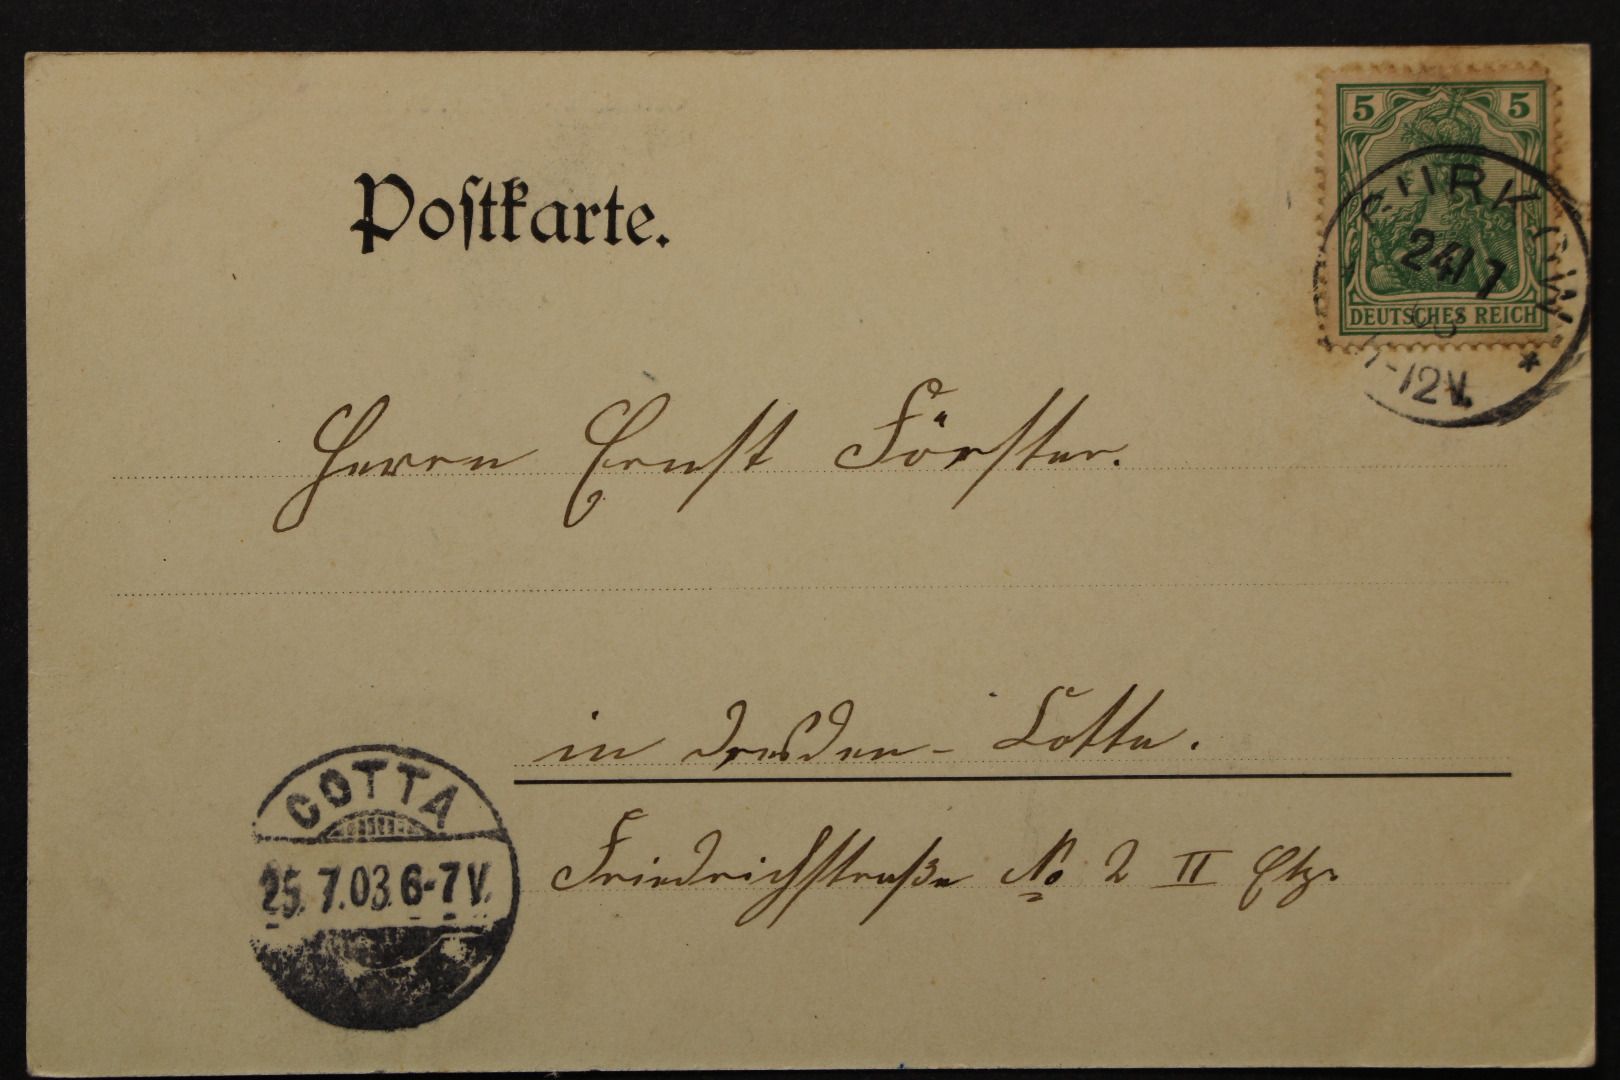 Postkarte.
5 5
24/7
DEUTSCHES REICH
-12V.
Herrn Ernst Förster.
in Dresden-Cotta.
COTTA
25.7.03.6-7V.
Friedrichstraße No 2 II Etg.